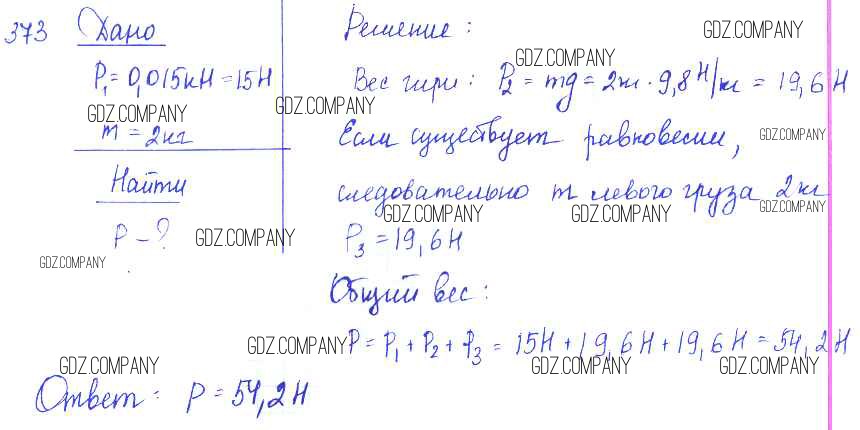 373 Дано
P₁ = 0,015кН = 15Н
m = 2кг
Найти
P - ?
Решение:
Вес гири: P₂ = mg = 2кг · 9,8 Н/кг = 19,6 Н
Если существует равновесии,
следовательно m левого груза 2кг
P₃ = 19,6 Н
Общий вес:
P = P₁ + P₂ + P₃ = 15Н + 19,6 Н + 19,6 Н = 54,2 Н
Ответ: P = 54,2 Н
GDZ.COMPANY
GDZ.COMPANY
GDZ.COMPANY
GDZ.COMPANY
GDZ.COMPANY
GDZ.COMPANY
GDZ.COMPANY
GDZ.COMPANY
GDZ.COMPANY
GDZ.COMPANY
GDZ.COMPANY
GDZ.COMPANY
GDZ.COMPANY
GDZ.COMPANY